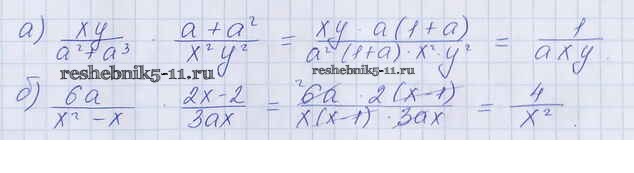 а) xy / (a² + a³) · (a + a²) / (x² y²) = (xy · a (1 + a)) / (a² (1+a) · x² · y²) = 1 / (a x y) .
reshebnik5-11.ru reshebnik5-11.ru
б) 6a / (x² – x) · (2x – 2) / (3ax) = (²6a · 2 (x – 1)) / (x(x-1) · 3ax) = 4 / x² .